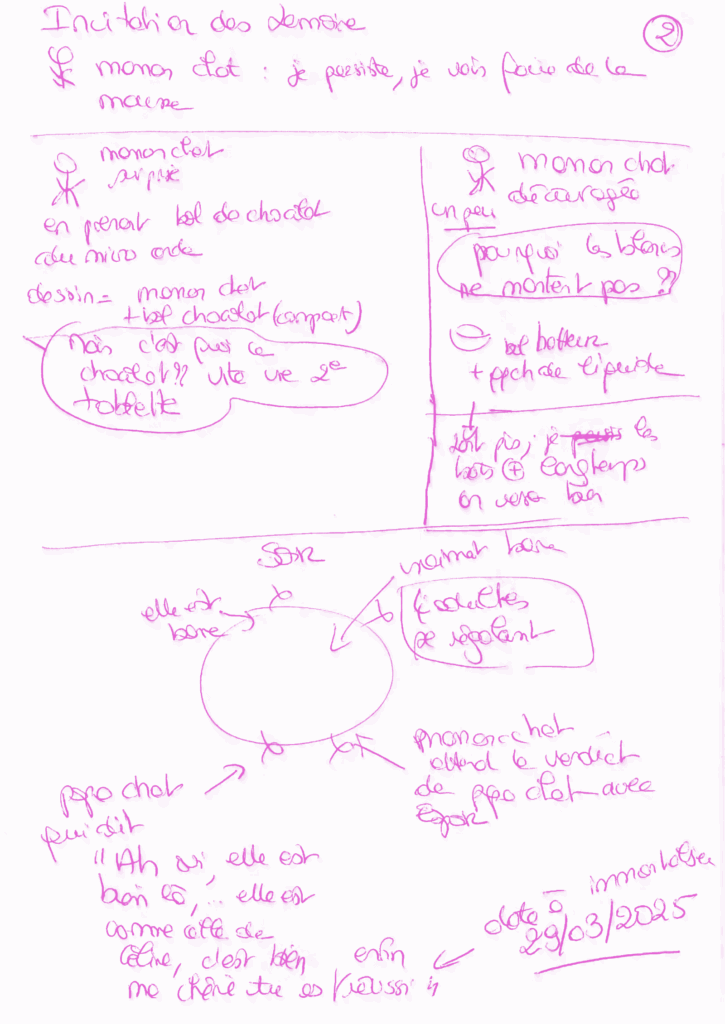 Incitation des
2
maman chat : je persiste, je vais faire de la
mousse
maman chat
surprise
en prenant bol de chocolat
du micro onde
dessin = maman chat
+ bol chocolat (compact)
Mais c'est quoi ce
chocolat ?? vite une 2e
tablette
maman chat
découragée
un peu
pourquoi les blancs
ne montent pas ??
bol batteur
+ liquide
tant pis, je les
bats + longtemps
on verra bien
SOIR
vraiment bonne
elle est
bonne
4 adultes
se régalant
maman chat
attend le verdict
de papa chat avec
espoir
papa chat
qui dit
"Ah oui, elle est
bien là, ... elle est
comme celle de
Céline, c'est bien enfin
ma chérie tu as réussi "
date à immortaliser
29/03/2025